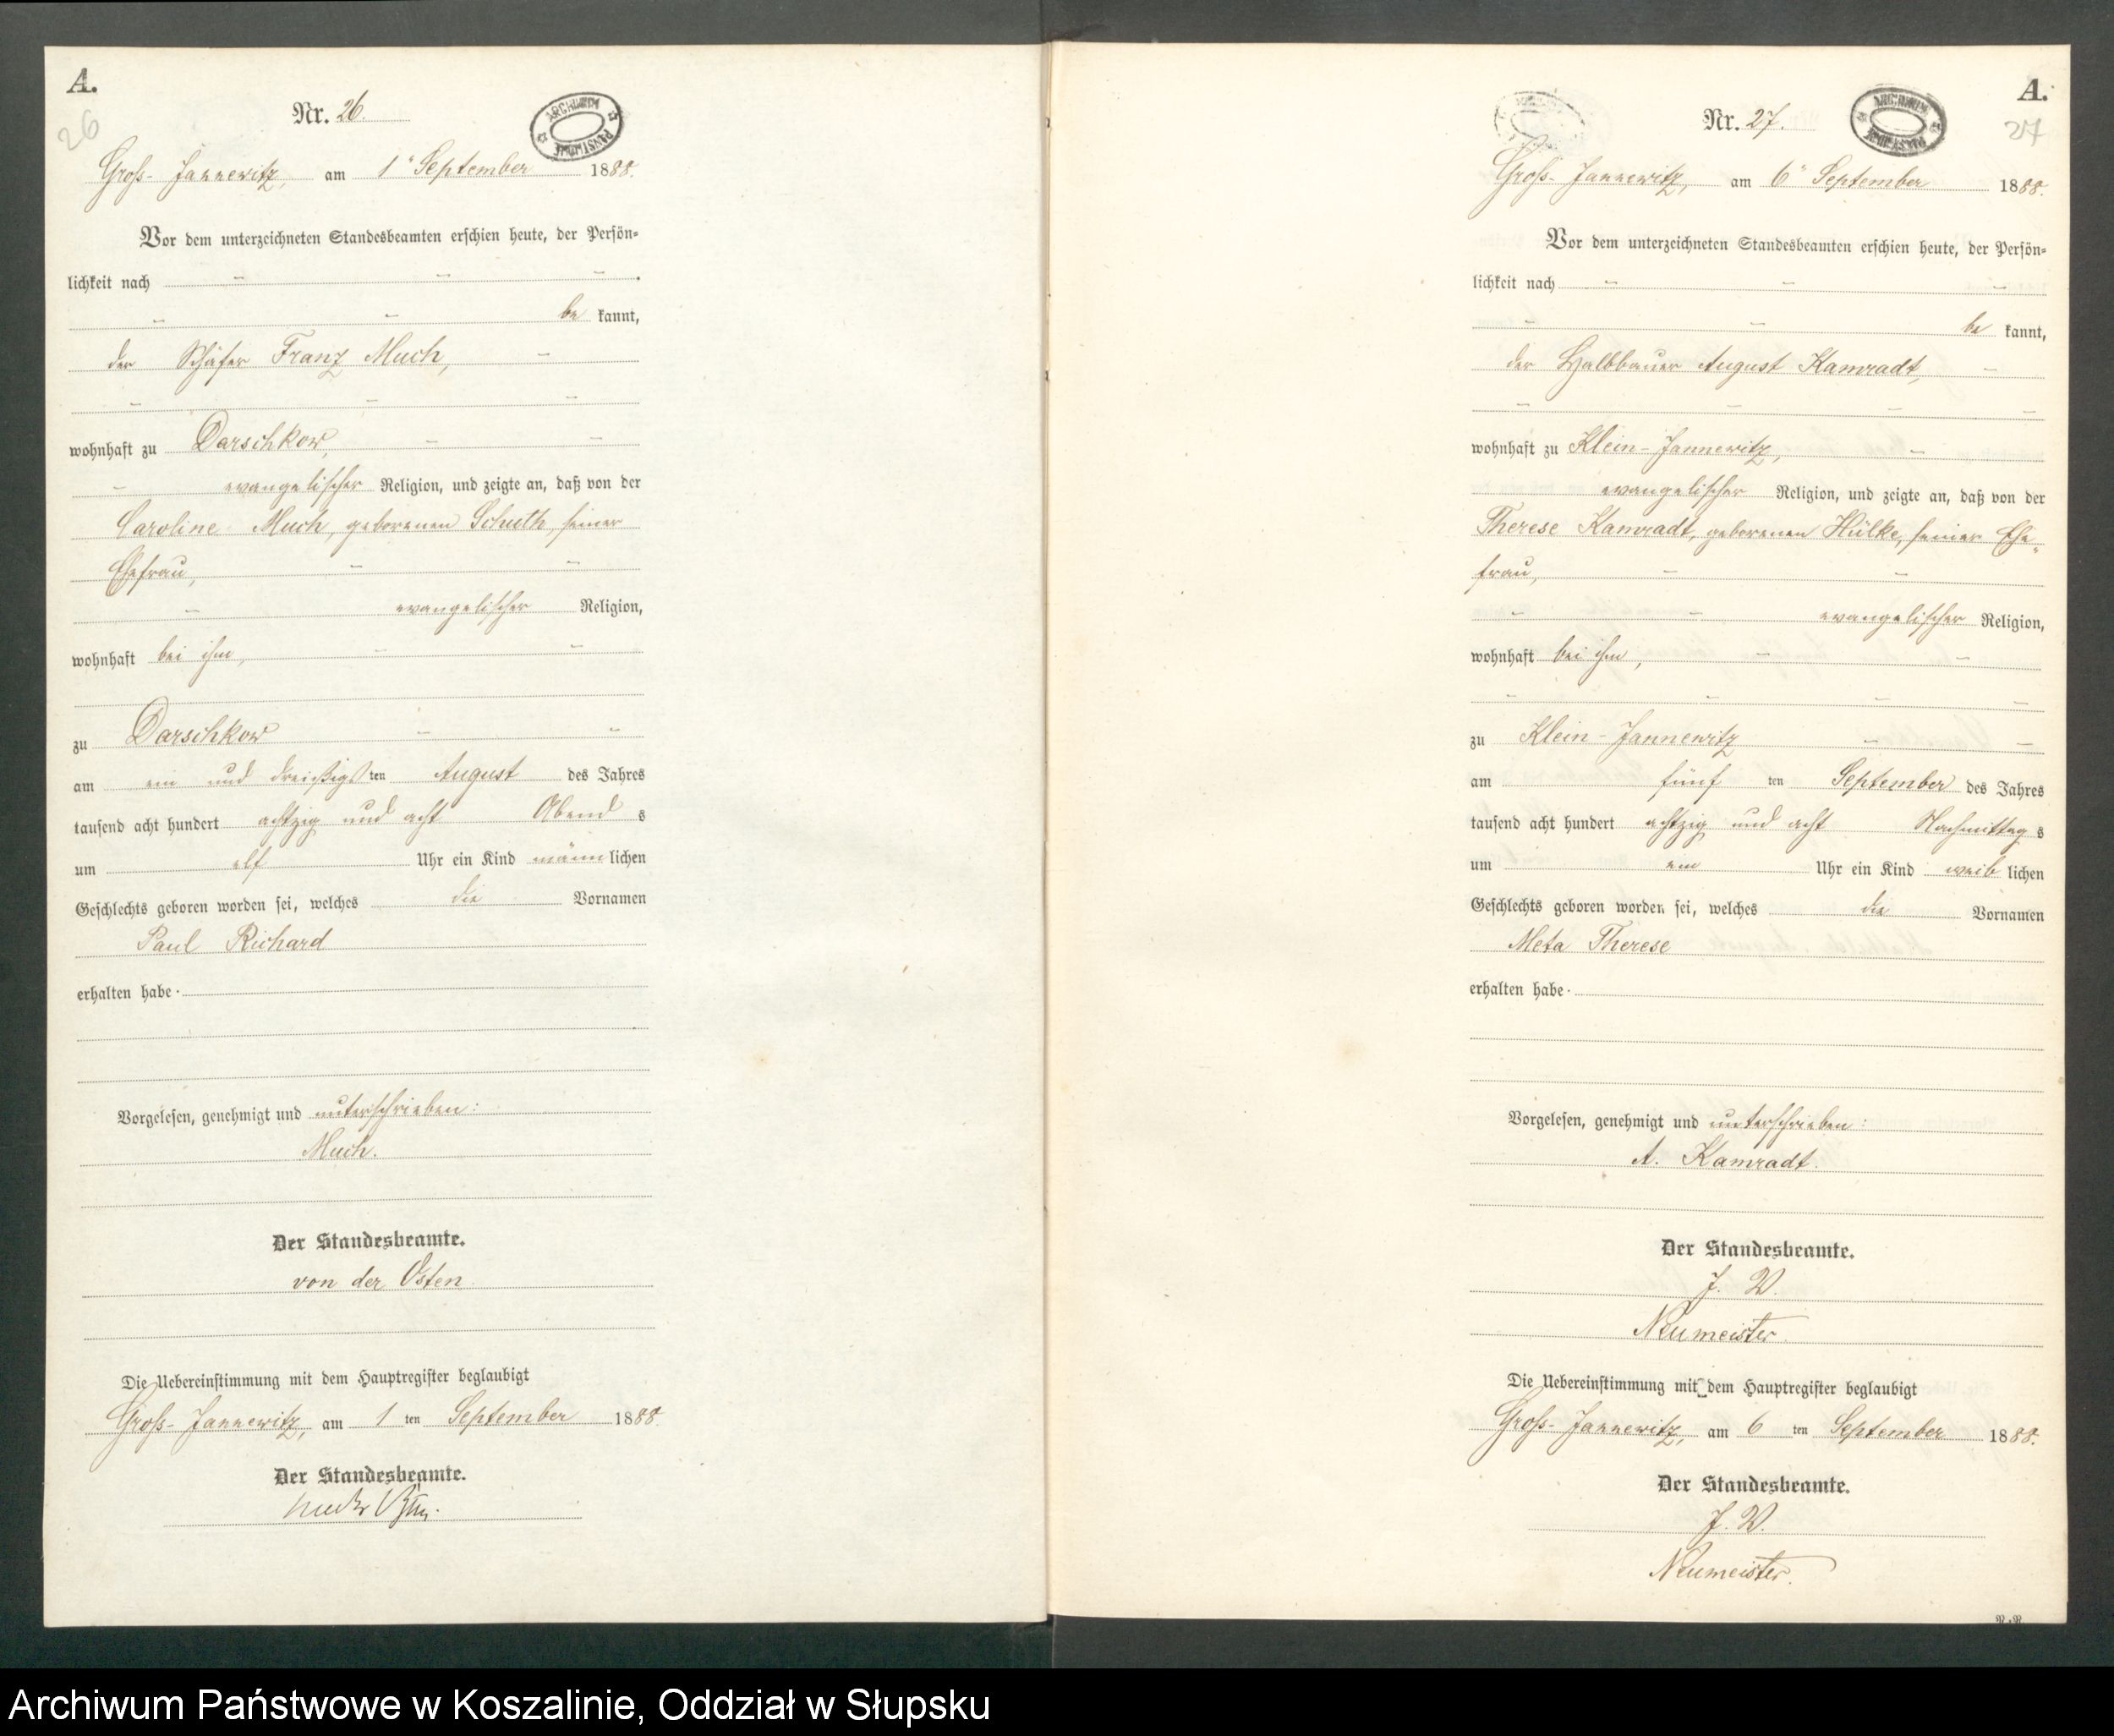 A.
26
Nr. 26.
ARCHIWUM PAŃSTWOWE
Groß-Jannewitz, am 1ᵗ September 1888.
Vor dem unterzeichneten Standesbeamten erschien heute, der Persön-
lichkeit nach
be kannt,
der Schäfer Franz Much,
wohnhaft zu Darschkow,
evangelischer Religion, und zeigte an, daß von der
Caroline Much, geborenen Schuth, seiner
Ehefrau,
evangelischer Religion,
wohnhaft bei ihm,
zu Darschkow
am ein und dreißigs ten August des Jahres
tausend acht hundert achtzig und acht Abend s
um elf Uhr ein Kind männ lichen
Geschlechts geboren worden sei, welches die Vornamen
Paul Richard
erhalten habe.
Vorgelesen, genehmigt und unterschrieben:
Much.
Der Standesbeamte.
von der Osten
Die Uebereinstimmung mit dem Hauptregister beglaubigt
Groß-Jannewitz, am 1 ten September 1888.
Der Standesbeamte.
A.
27
Nr. 27.
ARCHIWUM PAŃSTWOWE
Groß-Jannewitz, am 6ᵗ September 1888.
Vor dem unterzeichneten Standesbeamten erschien heute, der Persön-
lichkeit nach
be kannt,
der Halbbauer August Kamradt,
wohnhaft zu Klein-Jannewitz,
evangelischer Religion, und zeigte an, daß von der
Therese Kamradt, geborenen Hülke, seiner Ehe-
frau,
evangelischer Religion,
wohnhaft bei ihm,
zu Klein-Jannewitz
am fünf ten September des Jahres
tausend acht hundert achtzig und acht Nachmittag s
um ein Uhr ein Kind weib lichen
Geschlechts geboren worden sei, welches die Vornamen
Meta Therese
erhalten habe.
Vorgelesen, genehmigt und unterschrieben:
A. Kamradt.
Der Standesbeamte.
J. V.
Neumeister.
Die Uebereinstimmung mit dem Hauptregister beglaubigt
Groß-Jannewitz, am 6 ten September 1888.
Der Standesbeamte.
J. V.
Neumeister.
Archiwum Państwowe w Koszalinie, Oddział w Słupsku